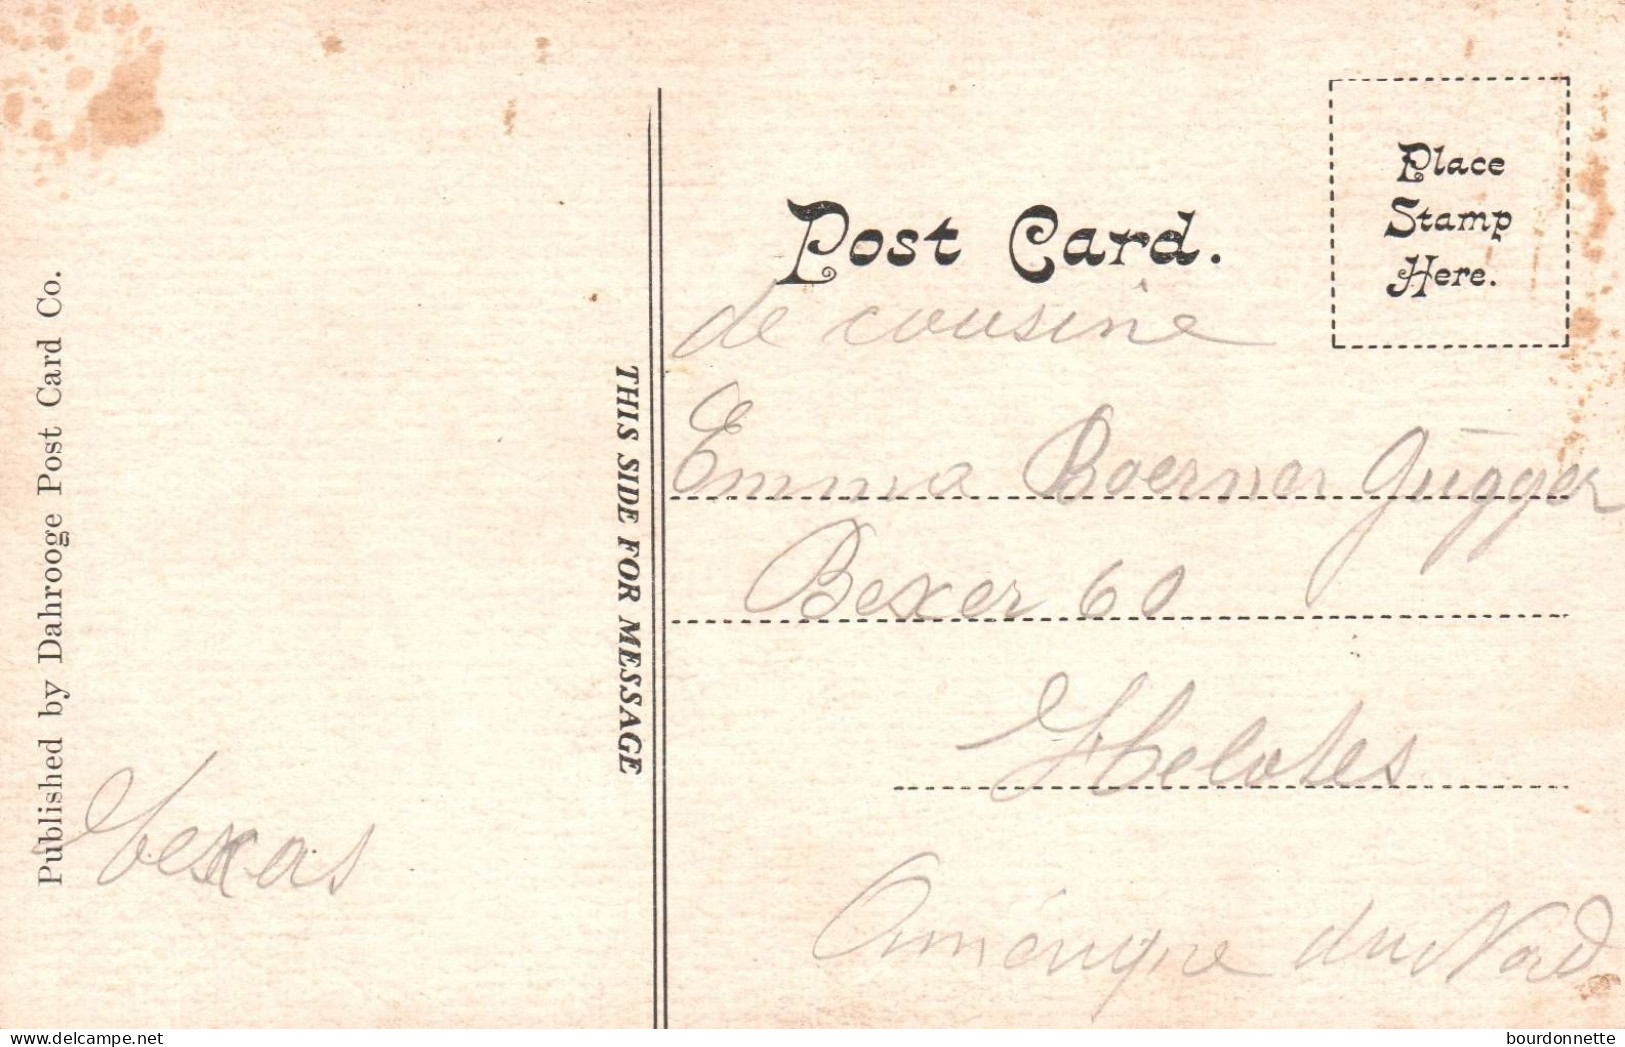 Published by Dahrooge Post Card Co.
THIS SIDE FOR MESSAGE
Texas
Post Card.
Place
Stamp
Here.
de cousine
Emma Boerner Gügger
Bexer 60
Helotes
Amérique du Nord
delcampe.net
bourdonnette